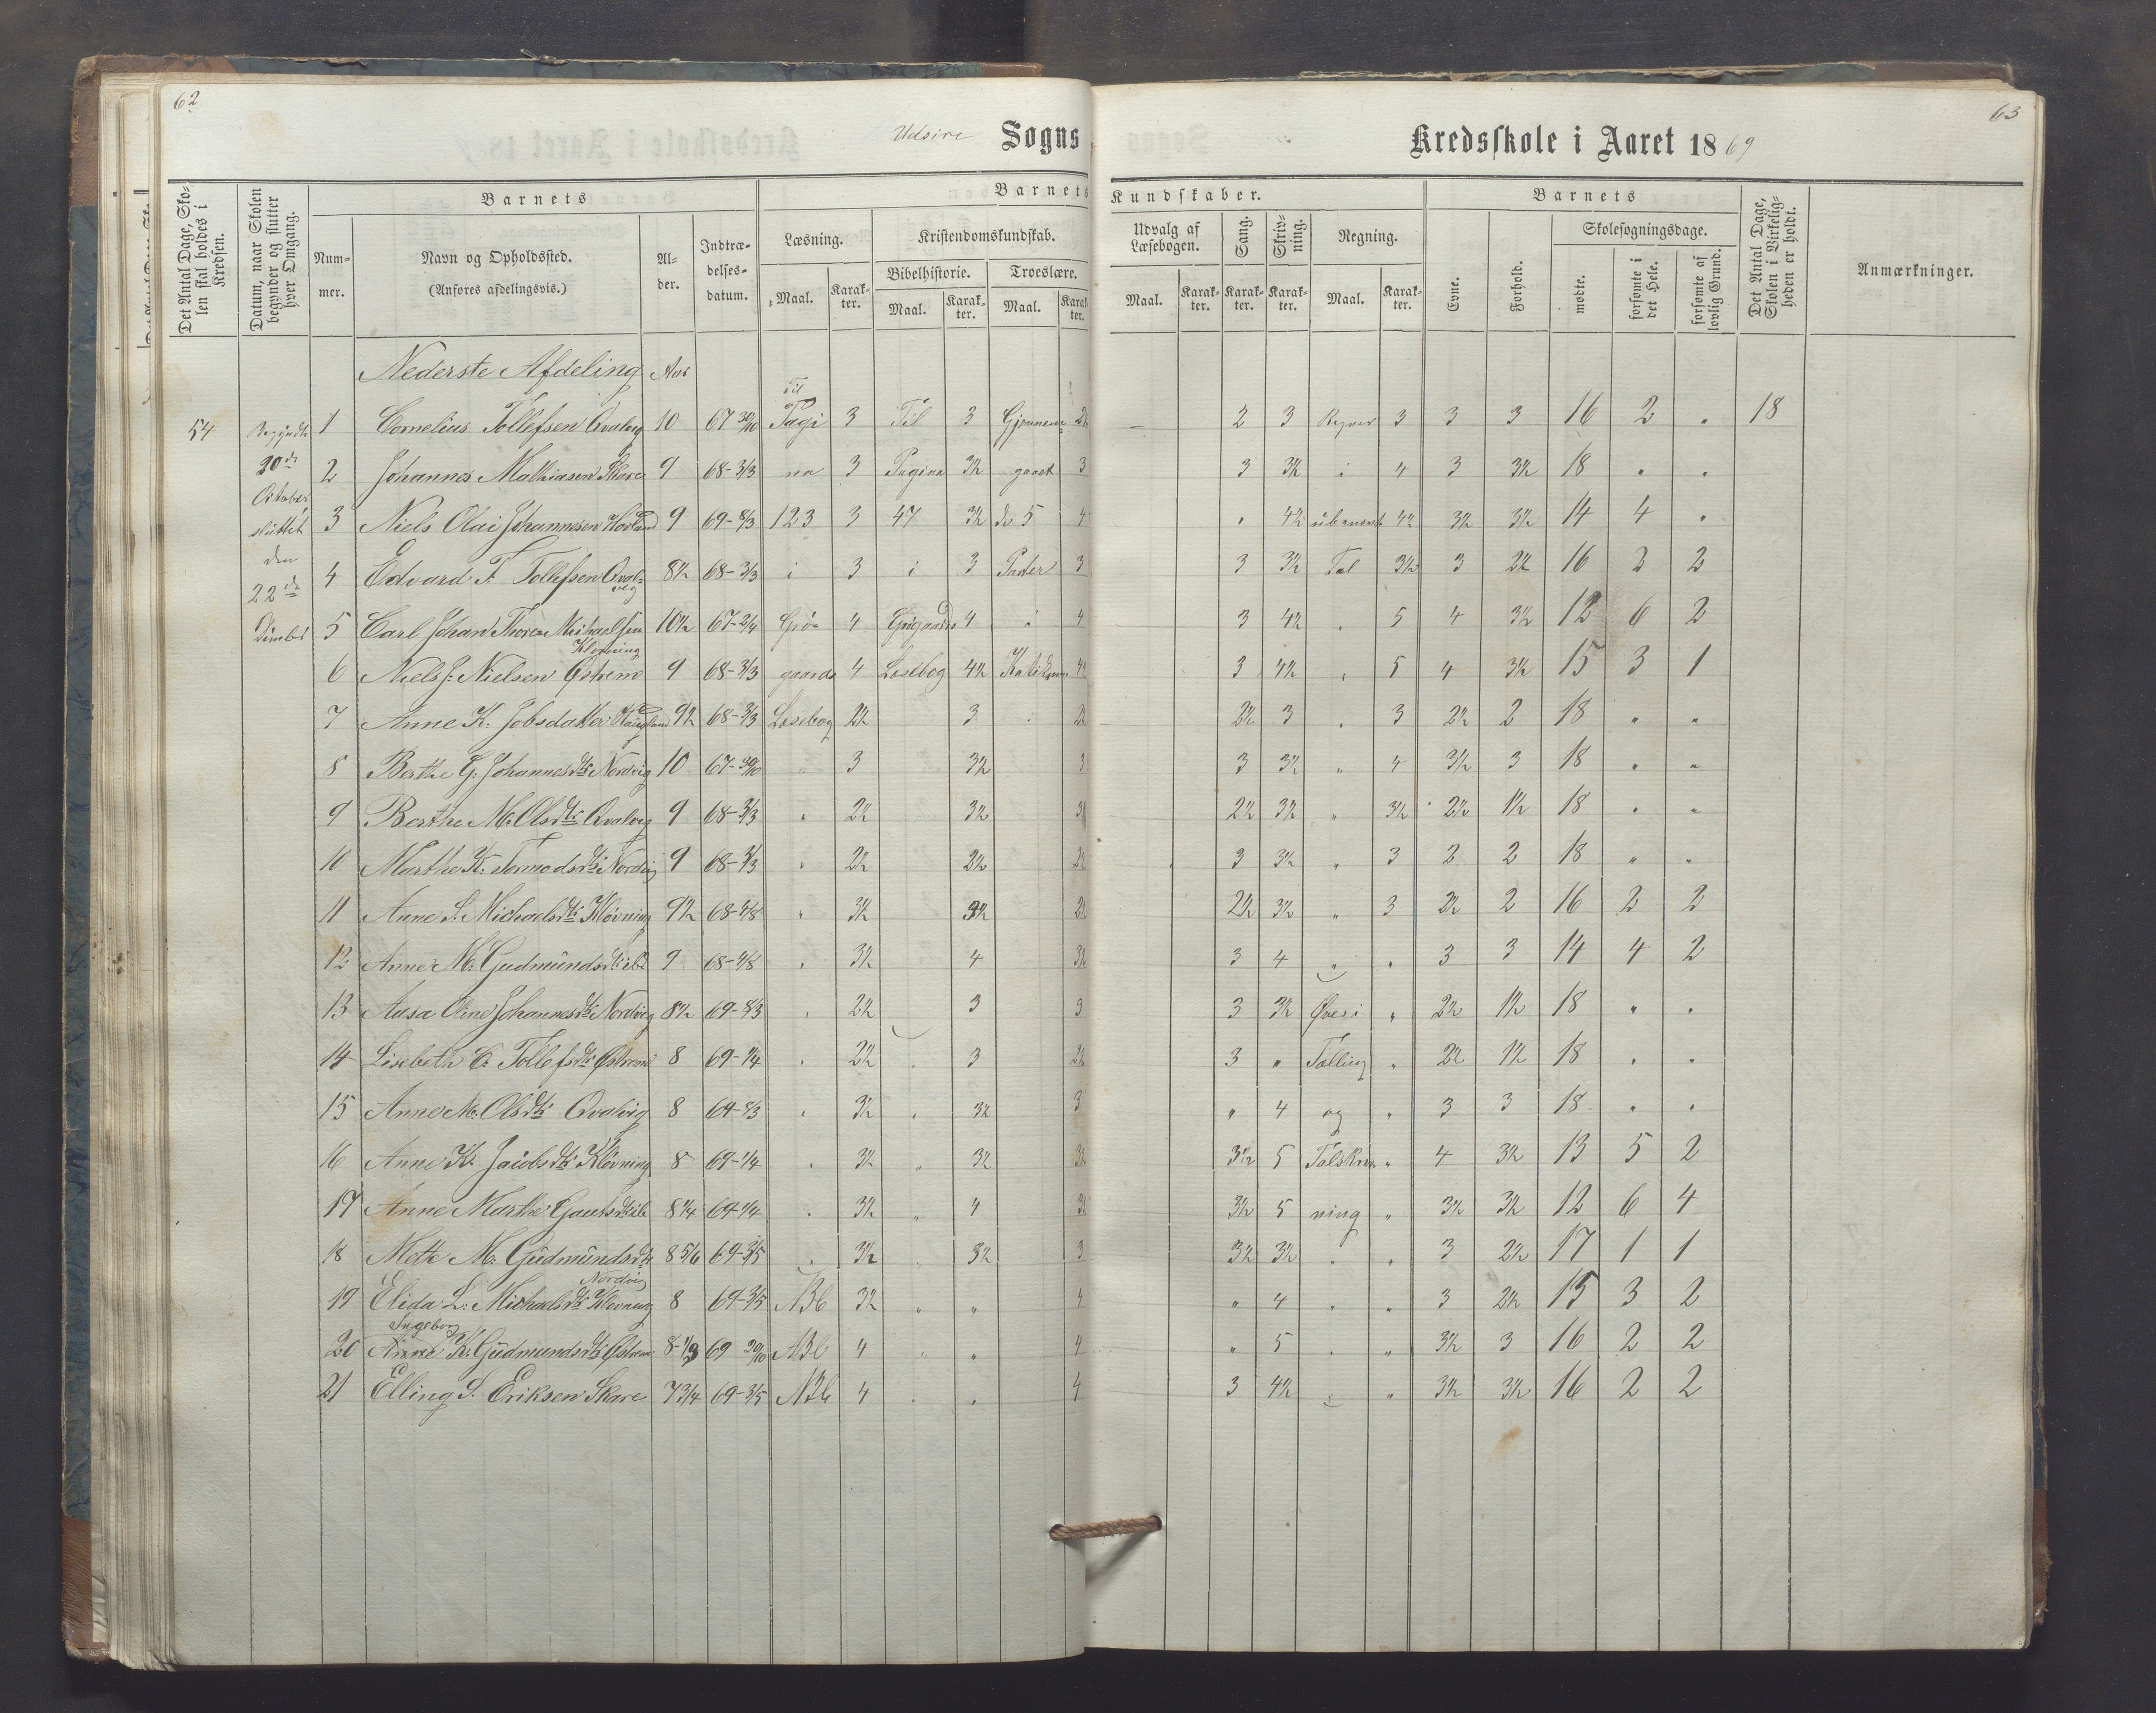 62
63
Udsire Sogns Kredsskole i Aaret 1869
Det Antal Dage, Skolen skal holdes i Kredsen.
Datum, naar Skolen begynder og slutter hver Omgang.
Barnets
Nummer.
Navn og Opholdssted.
(Anføres afdelingsvis.)
Alder.
Indtrædelsesdatum.
Barnets Kundskaber.
Læsning.
Maal. Karakter.
Kristendomskundskab.
Bibelhistorie. Troeslære.
Maal. Karakter. Maal. Karakter.
Udvalg af Læsebogen.
Maal. Karakter.
Sang. Karakter.
Skrivning. Karakter.
Regning.
Maal. Karakter.
Barnets
Evne. Forhold.
Skolesøgningsdage.
mødte. forsømte i det Hele. forsømte af lovlig Grund.
Det Antal Dage, Skolen i Virkeligheden er holdt.
Anmærkninger.
Nederste Afdeling Aar
54 Begyndt 1 Cornelius Tollefsen Qvalvig 10 67 30/10 Til Pagi 3 Til 3 Gjennem 2½ 2 3 Regner 3 3 3 16 2 „ 18
30de 2 Johannes Mathiasen Skare 9 68-3/3 na 3 Pagina 3½ gaaet 3 3 3½ i 4 3 3½ 18 „ „
October 3 Niels Olai Johannesen Hovland 9 69-8/3 123 3 47 3½ de 5 4 „ 4½ ubenevnt 4½ 3½ 3½ 14 4 „
sluttet den 4 Edvard T. Tollefsen Qvalvig 8½ 68-3/3 i 3 i 3 Parter 3 3 3½ Tal 3½ 3 2½ 16 2 2
22de 5 Carl Johan Thore Michaelsen Klovning 10½ 67-2/4 Grø- 4 4 i 4 3 4½ „ 5 4 3½ 12 6 2
6 Niels J. Nielsen Østrem 9 68-3/3 gaards 4 Læsebog 4½ 4½ 3 4½ „ 5 4 3½ 15 3 1
7 Anne K. Jobsdatter Haugland 9½ 68-3/3 Læsebog 2½ 3 2½ 2½ 3 „ 3 2½ 2 18 „ „
8 Berthe G. Johannesdtr Nordvig 10 67-30/10 „ 3 3½ 3 3 3½ „ 4 3½ 3 18 „ „
9 Berthe M. Olsdtr Qvalvig 9 68-3/3 „ 2½ 3½ 3½ 2½ 3½ „ 3½ 2½ 1½ 18 „ „
10 Marthe K. Tormodsdtr Nordvig 9 68-3/3 „ 2½ 2½ 2½ 3 3½ „ 3 2 2 18 „ „
11 Anne S. Michaelsdtr Kløvning 9½ 68-4/8 „ 3½ 3½ 2½ 2½ 3½ „ 3 2½ 2 16 2 2
12 Anne M. Gudmundsdtr ib 9 68-4/8 „ 3½ 4 3½ 3 4 „ „ 3 3 14 4 2
13 Aasa Oline Johannesdtr Nordvig 8½ 69-8/3 „ 2½ 3 3 3 3½ Øves i „ 2½ 1½ 18 „ „
14 Lisebeth C. Tollefsdtr Østrem 8 69-1/4 „ 2½ „ 3 2½ 3 „ Tælling „ 2½ 1½ 18 „ „
15 Anne M. Olsdtr Qvalvig 8 69-8/3 „ 3½ „ 3½ 3 „ 4 og „ 3 3 18 „ „
16 Anne K. Jacobsdtr Kløvning 8 69-1/4 „ 3½ „ 3½ 3½ 3½ 5 Talskriv „ 4 3½ 13 5 2
17 Anne Marthe Gautsdtr ib 8 1/4 69-1/4 „ 3½ „ 4 3½ 3½ 5 ning „ 3½ 3½ 12 6 4
18 Mette M. Gudmundsdtr Nordvig 8 5/6 69-3/5 „ 3½ „ 3½ 3 3½ 3½ „ „ 3 2½ 17 1 1
19 Elida L. Michaelsdtr Kløvning 8 69-3/5 ABC 3½ „ „ 4 „ 4 „ „ 3 2½ 15 3 2
20 Ingeborg K. Gudmundsdtr Østrem 8 1/3 69 30/10 ABC 4 „ „ 4 „ 5 „ „ 3½ 3 16 2 2
21 Elling S. Eriksen Skare 7 3/4 69-3/5 ABC 4 „ „ 4 3 4½ „ „ 3½ 3½ 16 2 2